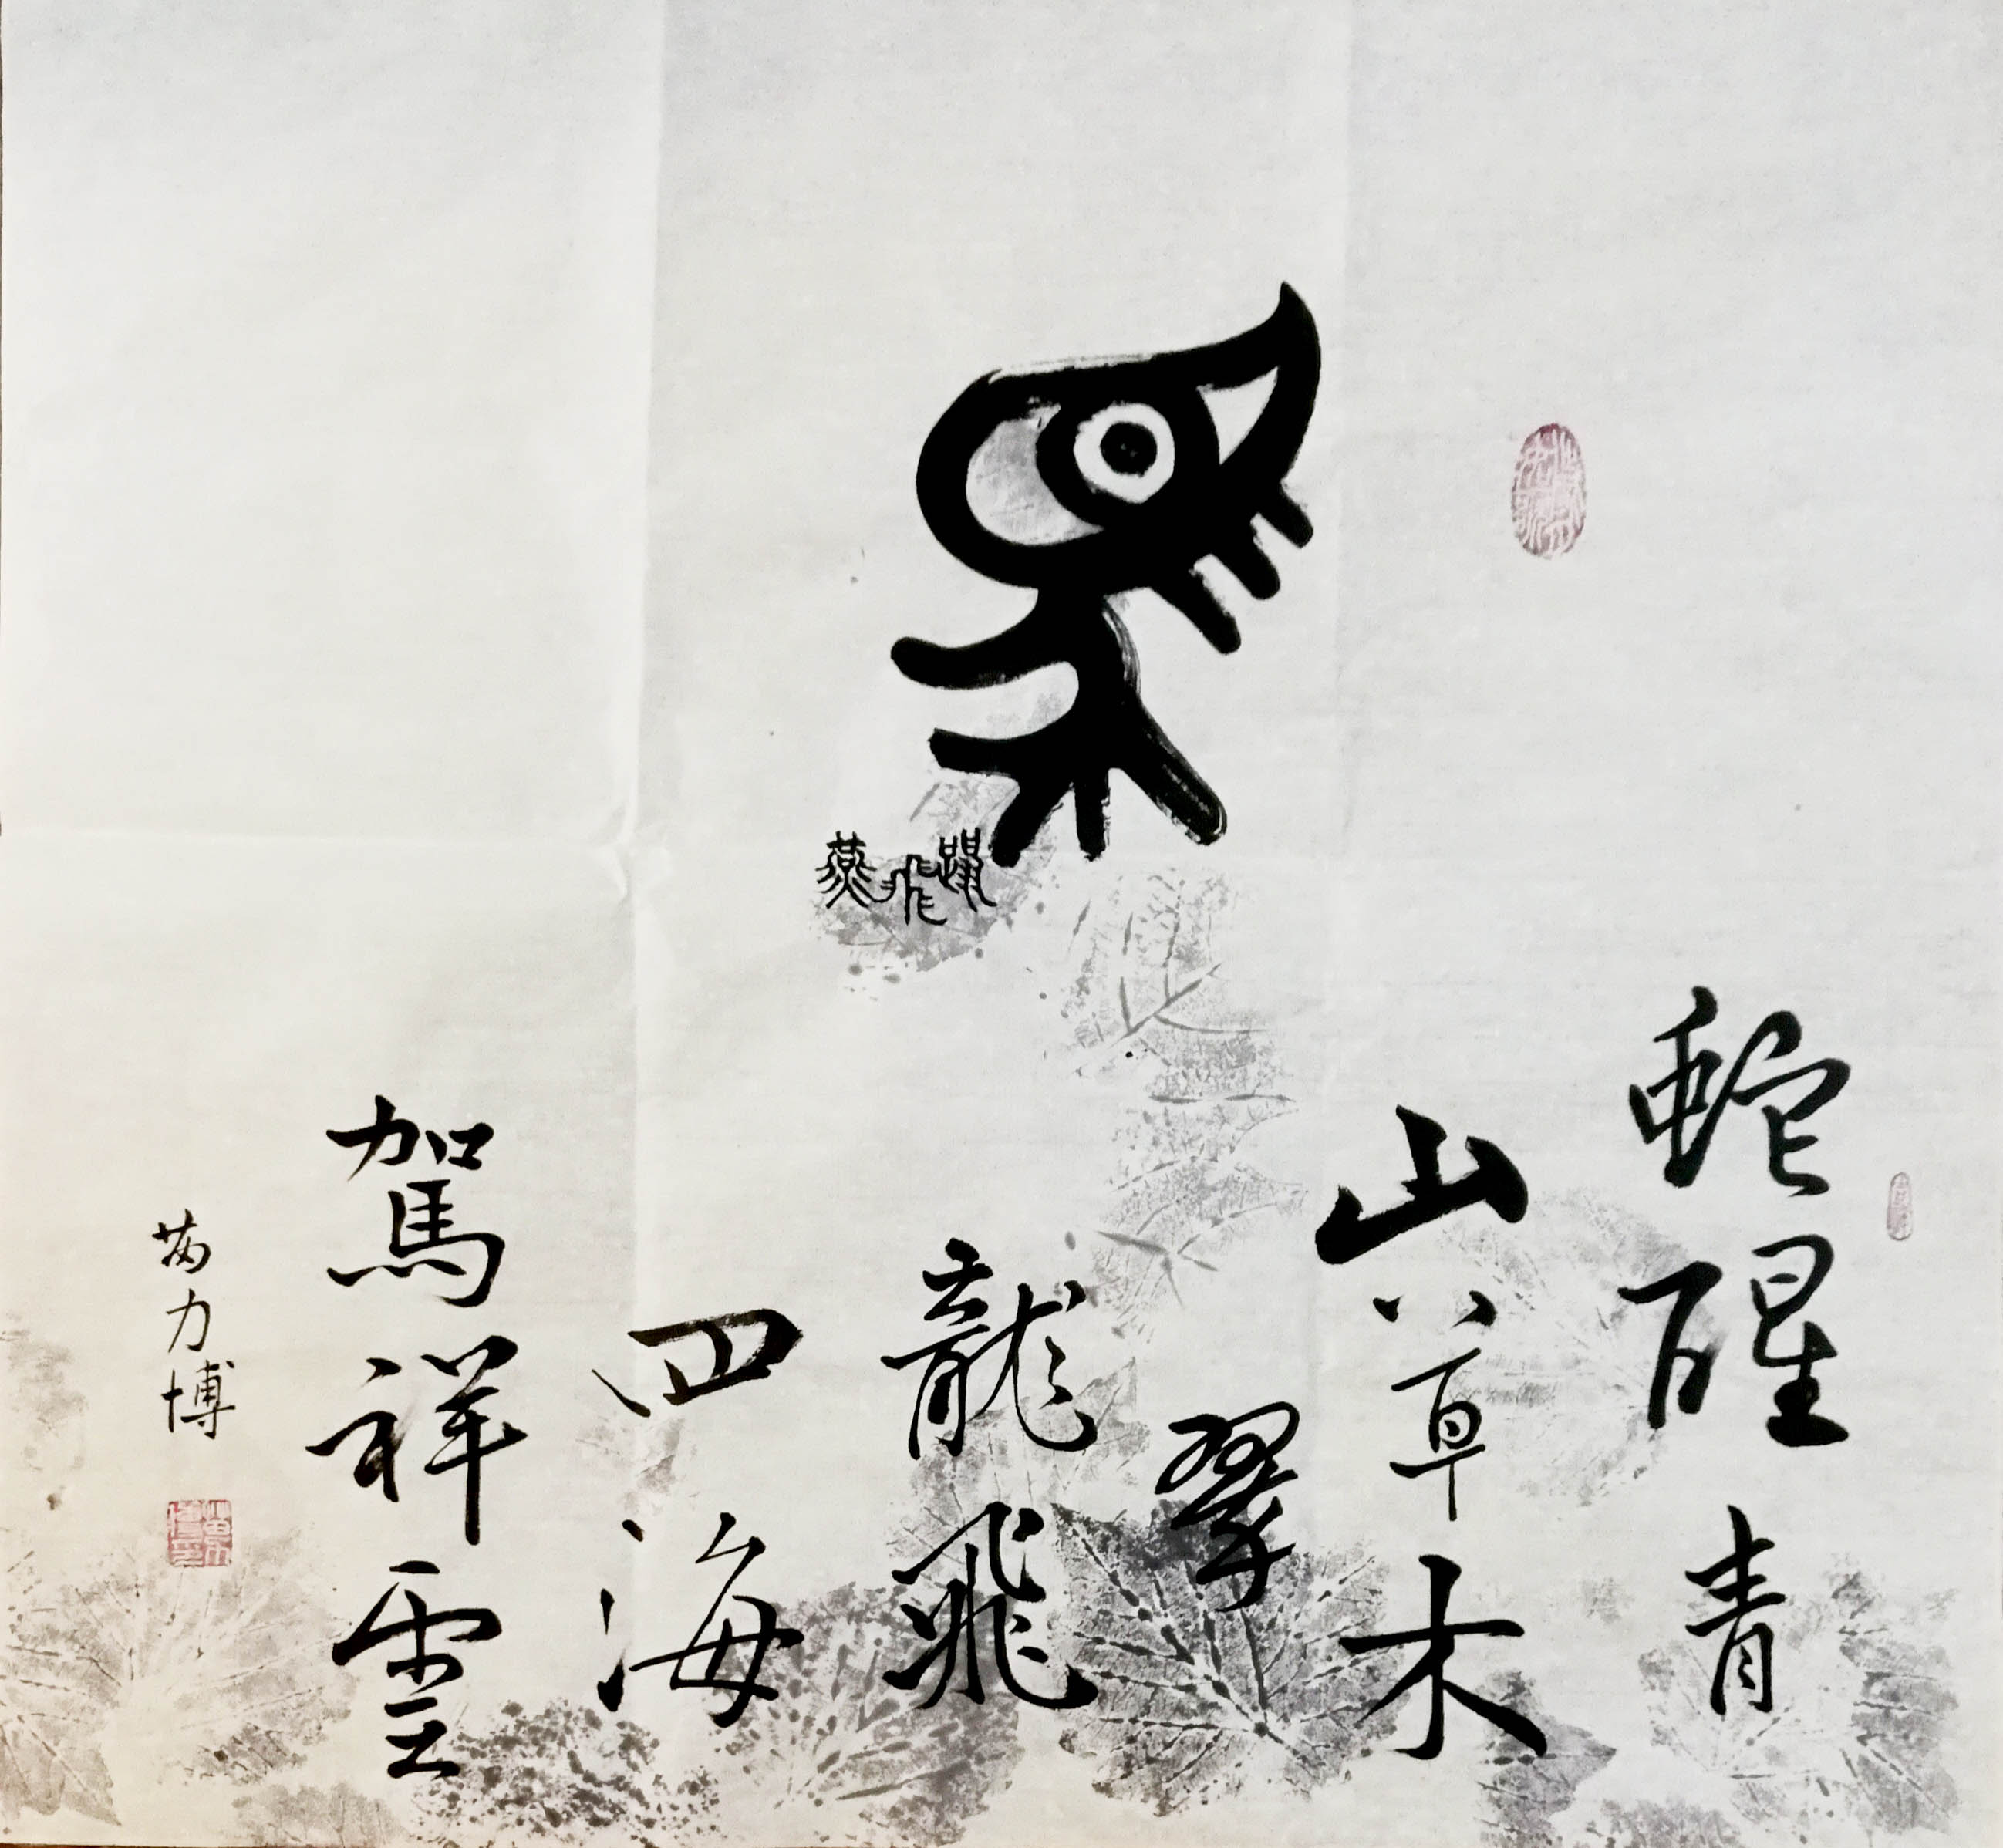 飛燕
蛇醒青
山草木
翠
龍飛
四海
駕祥雲
苗力博